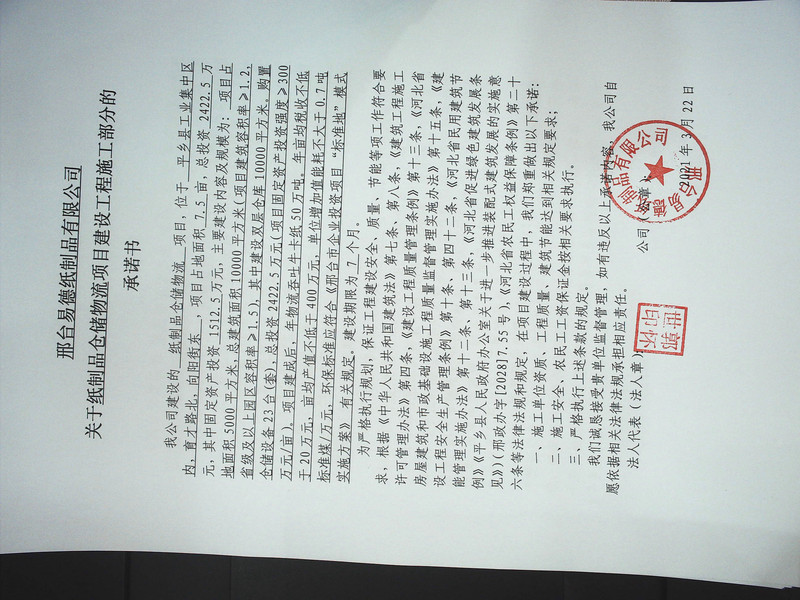 邢台易德纸制品有限公司
关于纸制品仓储物流项目建设工程施工部分的
承诺书
我公司建设的 纸制品仓储物流 项目，位于 平乡县工业集中区
内，育才路北，向阳街东 ，项目占地面积 7.5 亩，总投资 2422.5 万
元，其中固定资产投资 1512.5 万元，主要建设内容及规模为：项目占
地面积 5000 平方米，总建筑面积 10000 平方米（项目建筑容积率≥1.2，
省级及以上园区容积率≥1.5），其中建设双层仓库 10000 平方米，购置
仓储设备 23 台(套)，总投资 2422.5 万元(项目固定资产投资强度≥300
万元/亩)。项目建成后，年物流吞吐牛卡纸 50 万吨。年亩均税收不低
于 20 万元，亩均产值不低于 400 万元，单位增加值能耗不大于 0.7 吨
标准煤/万元，环保标准应符合《邢台市企业投资项目“标准地”模式
实施方案》有关规定。建设期限为 7 个月。
为严格执行规划，保证工程建设安全、质量、节能等项工作符合要
求，根据《中华人民共和国建筑法》第七条、第八条，《建筑工程施工
许可管理办法》第四条，《建设工程质量管理条例》第十三条，《河北省
房屋建筑和市政基础设施工程质量监督管理实施办法》第十五条，《建
设工程安全生产管理条例》第十条、第四十二条，《河北省民用建筑节
能管理实施办法》第十二条、第十三条，《河北省促进绿色建筑发展条
例》《平乡县人民政府办公室关于进一步推进装配式建筑发展的实施意
见》)(邢政办字[2028]7.55 号)，《河北省农民工权益保障条例》第二十
六条等法律法规和规定，在项目建设过程中，我们郑重做出以下承诺：
一、施工单位资质、工程质量、建筑节能达到相关规定要求；
二、施工安全、农民工工资保证金按相关要求执行。
三、严格执行上述条款的规定。
我们诚恳接受贵单位监督管理，如有违反以上承诺内容，我公司自
愿依据相关法律法规承担相应责任。
法人代表（法人章）
公司（公章）
2021 年 3 月 22 日